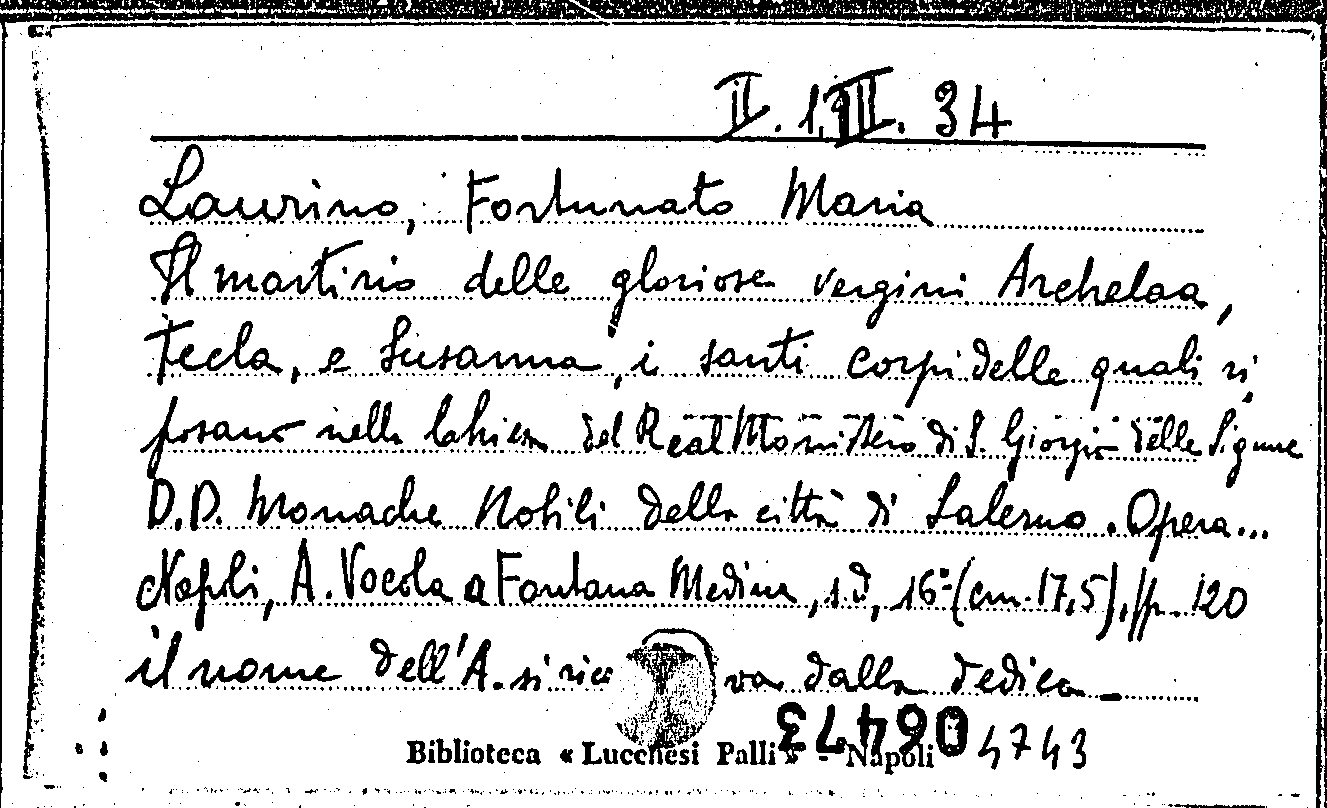 II. 1. III. 34
Laurino, Fortunato Maria
Il martirio delle gloriose vergini Archelaa,
Tecla, e Susanna, i santi corpi delle quali ri,
posano nella Chiesa del Real Monistero di S. Giorgio delle Signore
D.D. Monache Nobili della città di Salerno. Opera...
Napoli, A. Vocola a Fontana Medina, s.d, 16° (cm. 17,5), pp. 120
il nome dell'A. si rica va dalla dedica -
064743 4743
Biblioteca « Lucchesi Palli » - Napoli